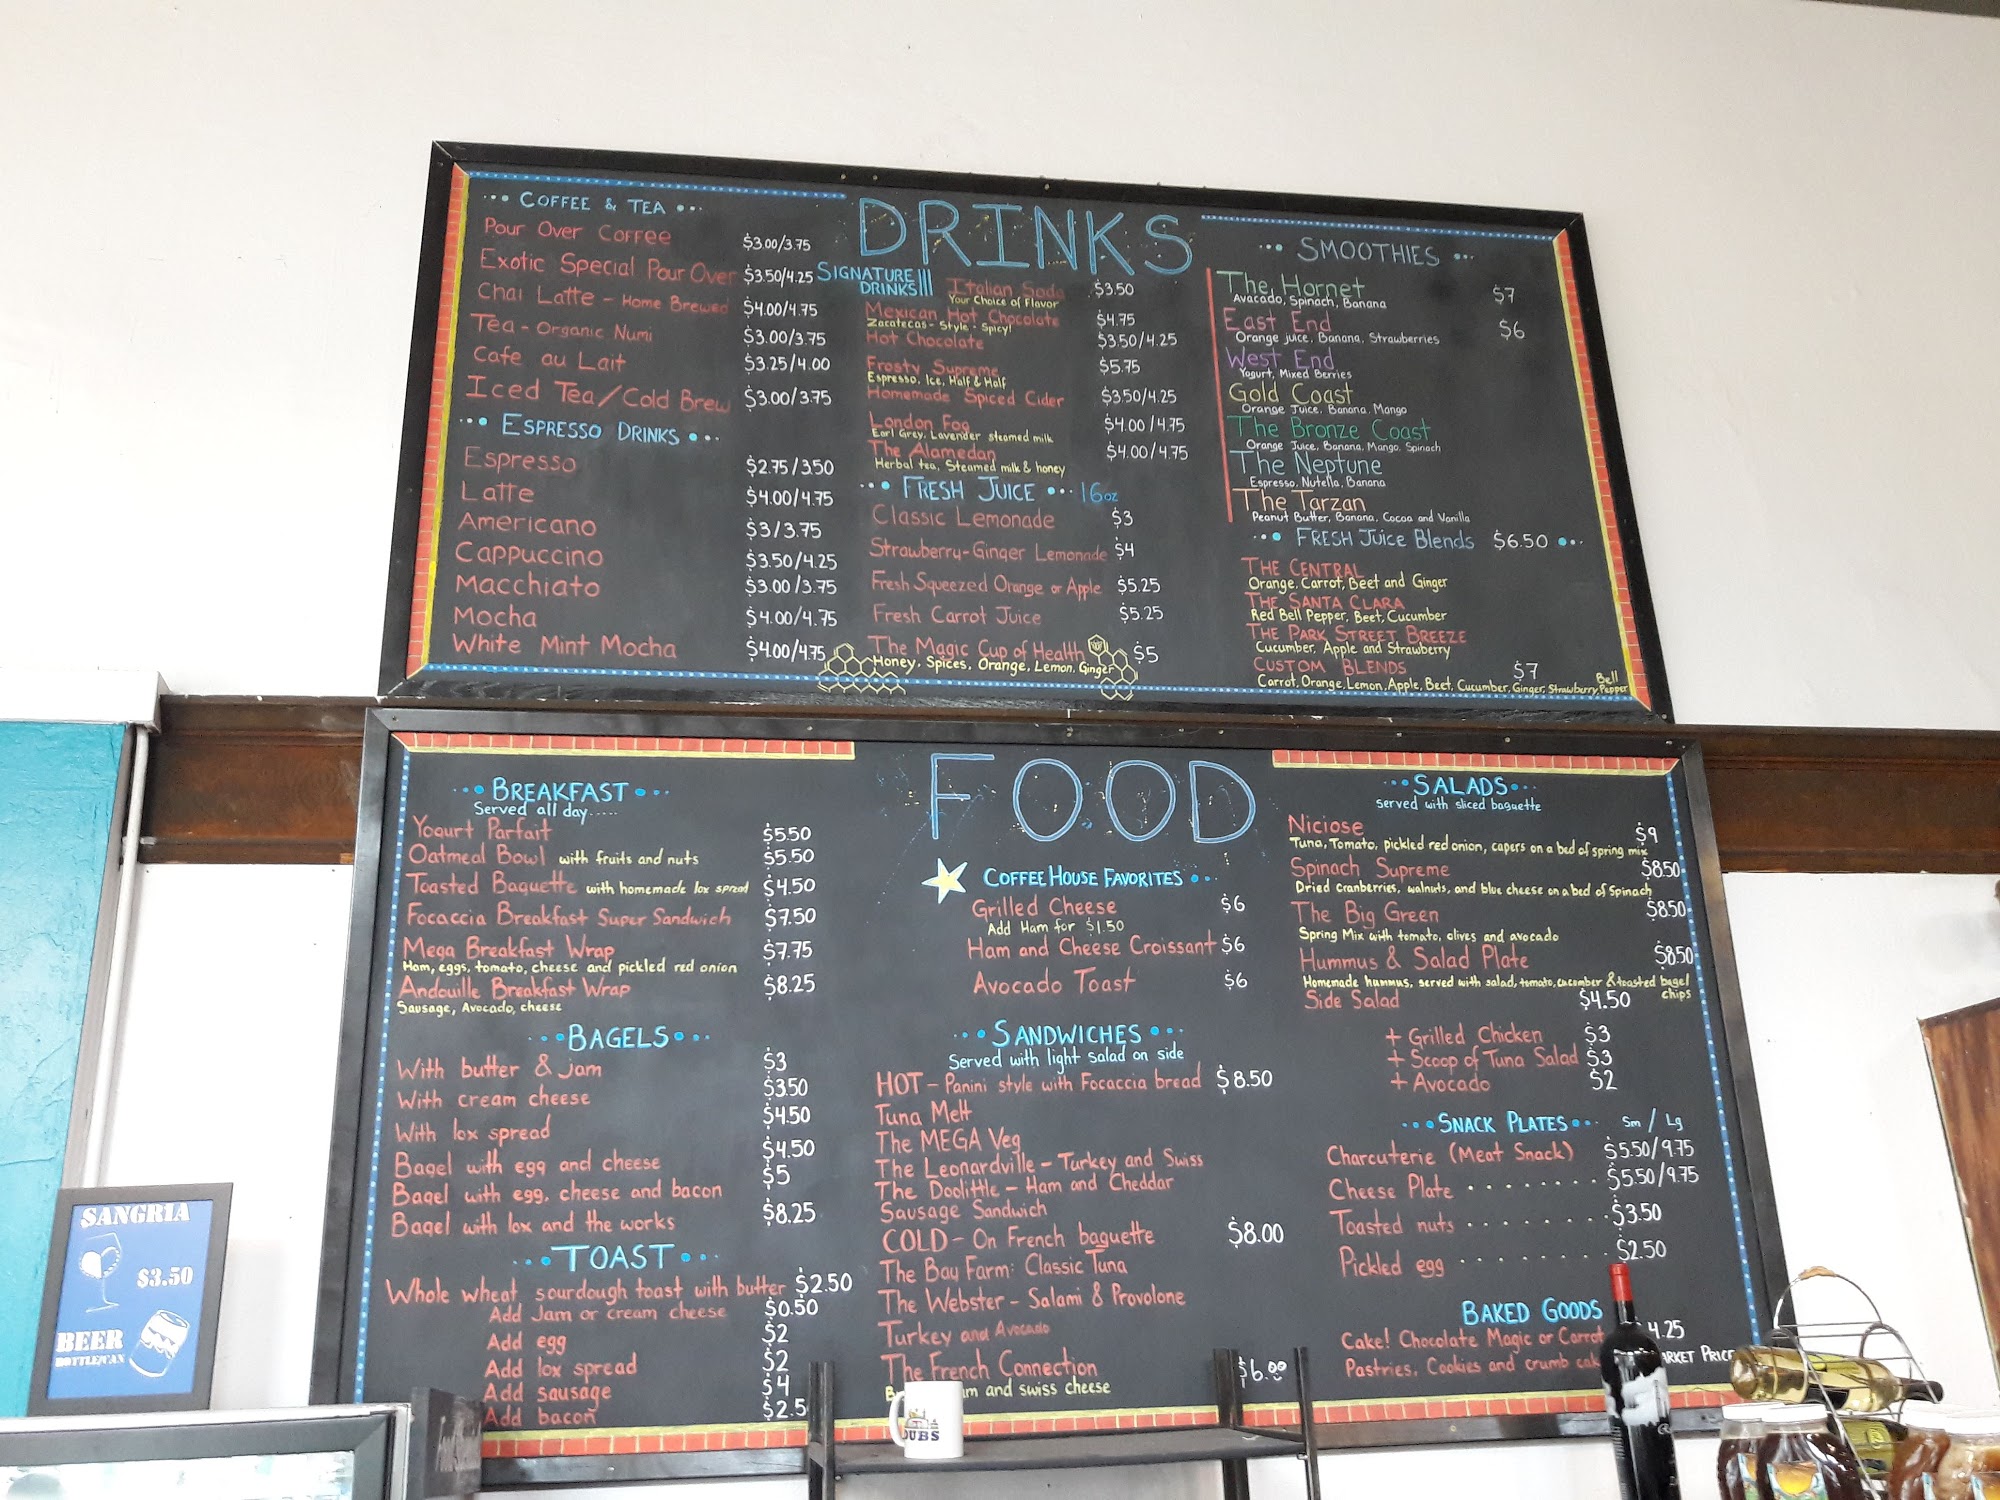 DRINKS
COFFEE & TEA
Pour Over Coffee $3.00/3.75
Exotic Special Pour Over $3.50/4.25
Chai Latte - Home Brewed $4.00/4.75
Tea - Organic Numi $3.00/3.75
Cafe au Lait $3.25/4.00
Iced Tea/Cold Brew $3.00/3.75
ESPRESSO DRINKS
Espresso $2.75/3.50
Latte $4.00/4.75
Americano $3/3.75
Cappuccino $3.50/4.25
Macchiato $3.00/3.75
Mocha $4.00/4.75
White Mint Mocha $4.00/4.75
SIGNATURE
DRINKS
Italian Soda $3.50
Your Choice of Flavor
Mexican Hot Chocolate $4.75
Zacatecas - Style - Spicy!
Hot Chocolate $3.50/4.25
Frosty Supreme $5.75
Espresso, Ice, Half & Half
Homemade Spiced Cider $3.50/4.25
London Fog $4.00/4.75
Earl Grey, Lavender steamed milk
The Alamedan $4.00/4.75
Herbal tea, Steamed milk & honey
FRESH JUICE 16oz
Classic Lemonade $3
Strawberry-Ginger Lemonade $4
Fresh Squeezed Orange or Apple $5.25
Fresh Carrot Juice $5.25
The Magic Cup of Health $5
Honey, Spices, Orange, Lemon, Ginger
SMOOTHIES
The Hornet $7
Avacado, Spinach, Banana
East End $6
Orange juice, Banana, Strawberries
West End
Yogurt, Mixed Berries
Gold Coast
Orange Juice, Banana, Mango
The Bronze Coast
Orange Juice, Banana, Mango, Spinach
The Neptune
Espresso, Nutella, Banana
The Tarzan
Peanut Butter, Banana, Cocoa and Vanilla
FRESH Juice Blends $6.50
THE CENTRAL
Orange, Carrot, Beet and Ginger
THE SANTA CLARA
Red Bell Pepper, Beet, Cucumber
THE PARK STREET BREEZE
Cucumber, Apple and Strawberry
CUSTOM BLENDS $7
Carrot, Orange, Lemon, Apple, Beet, Cucumber, Ginger, Strawberry, Bell Pepper
FOOD
BREAKFAST
Served all day.....
Yogurt Parfait $5.50
Oatmeal Bowl with fruits and nuts $5.50
Toasted Baguette with homemade lox spread $4.50
Focaccia Breakfast Super Sandwich $7.50
Mega Breakfast Wrap $7.75
Ham, eggs, tomato, cheese and pickled red onion
Andouille Breakfast Wrap $8.25
Sausage, Avocado, cheese
BAGELS
With butter & jam $3
With cream cheese $3.50
With lox spread $4.50
Bagel with egg and cheese $4.50
Bagel with egg, cheese and bacon $5
Bagel with lox and the works $8.25
TOAST
Whole wheat, sourdough toast with butter $2.50
Add Jam or cream cheese $0.50
Add egg $2
Add lox spread $2
Add sausage $4
Add bacon $2.5
COFFEE HOUSE FAVORITES
Grilled Cheese $6
Add Ham for $1.50
Ham and Cheese Croissant $6
Avocado Toast $6
SANDWICHES
Served with light salad on side
HOT - Panini style with Focaccia bread $8.50
Tuna Melt
The MEGA Veg
The Leonardville - Turkey and Swiss
The Doolittle - Ham and Cheddar
Sausage Sandwich
COLD - On French baguette $8.00
The Bay Farm: Classic Tuna
The Webster - Salami & Provolone
Turkey and Avocado
The French Connection $6.00
and swiss cheese
SALADS
served with sliced baguette
Niciose $9
Tuna, Tomato, pickled red onion, capers on a bed of spring mix
Spinach Supreme $8.50
Dried cranberries, walnuts, and blue cheese on a bed of Spinach
The Big Green $8.50
Spring Mix with tomato, olives and avocado
Hummus & Salad Plate $8.50
Homemade hummus, served with salad, tomato, cucumber & toasted bagel chips
Side Salad $4.50
+ Grilled Chicken $3
+ Scoop of Tuna Salad $3
+ Avocado $2
SNACK PLATES Sm / Lg
Charcuterie (Meat Snack) $5.50/9.75
Cheese Plate ........ $5.50/9.75
Toasted nuts ........ $3.50
Pickled egg ........ $2.50
BAKED GOODS
Cake! Chocolate Magic or Carrot 4.25
Pastries, Cookies and crumb MARKET PRICE
SANGRIA
$3.50
BEER
BOTTLE/CAN
DUBS